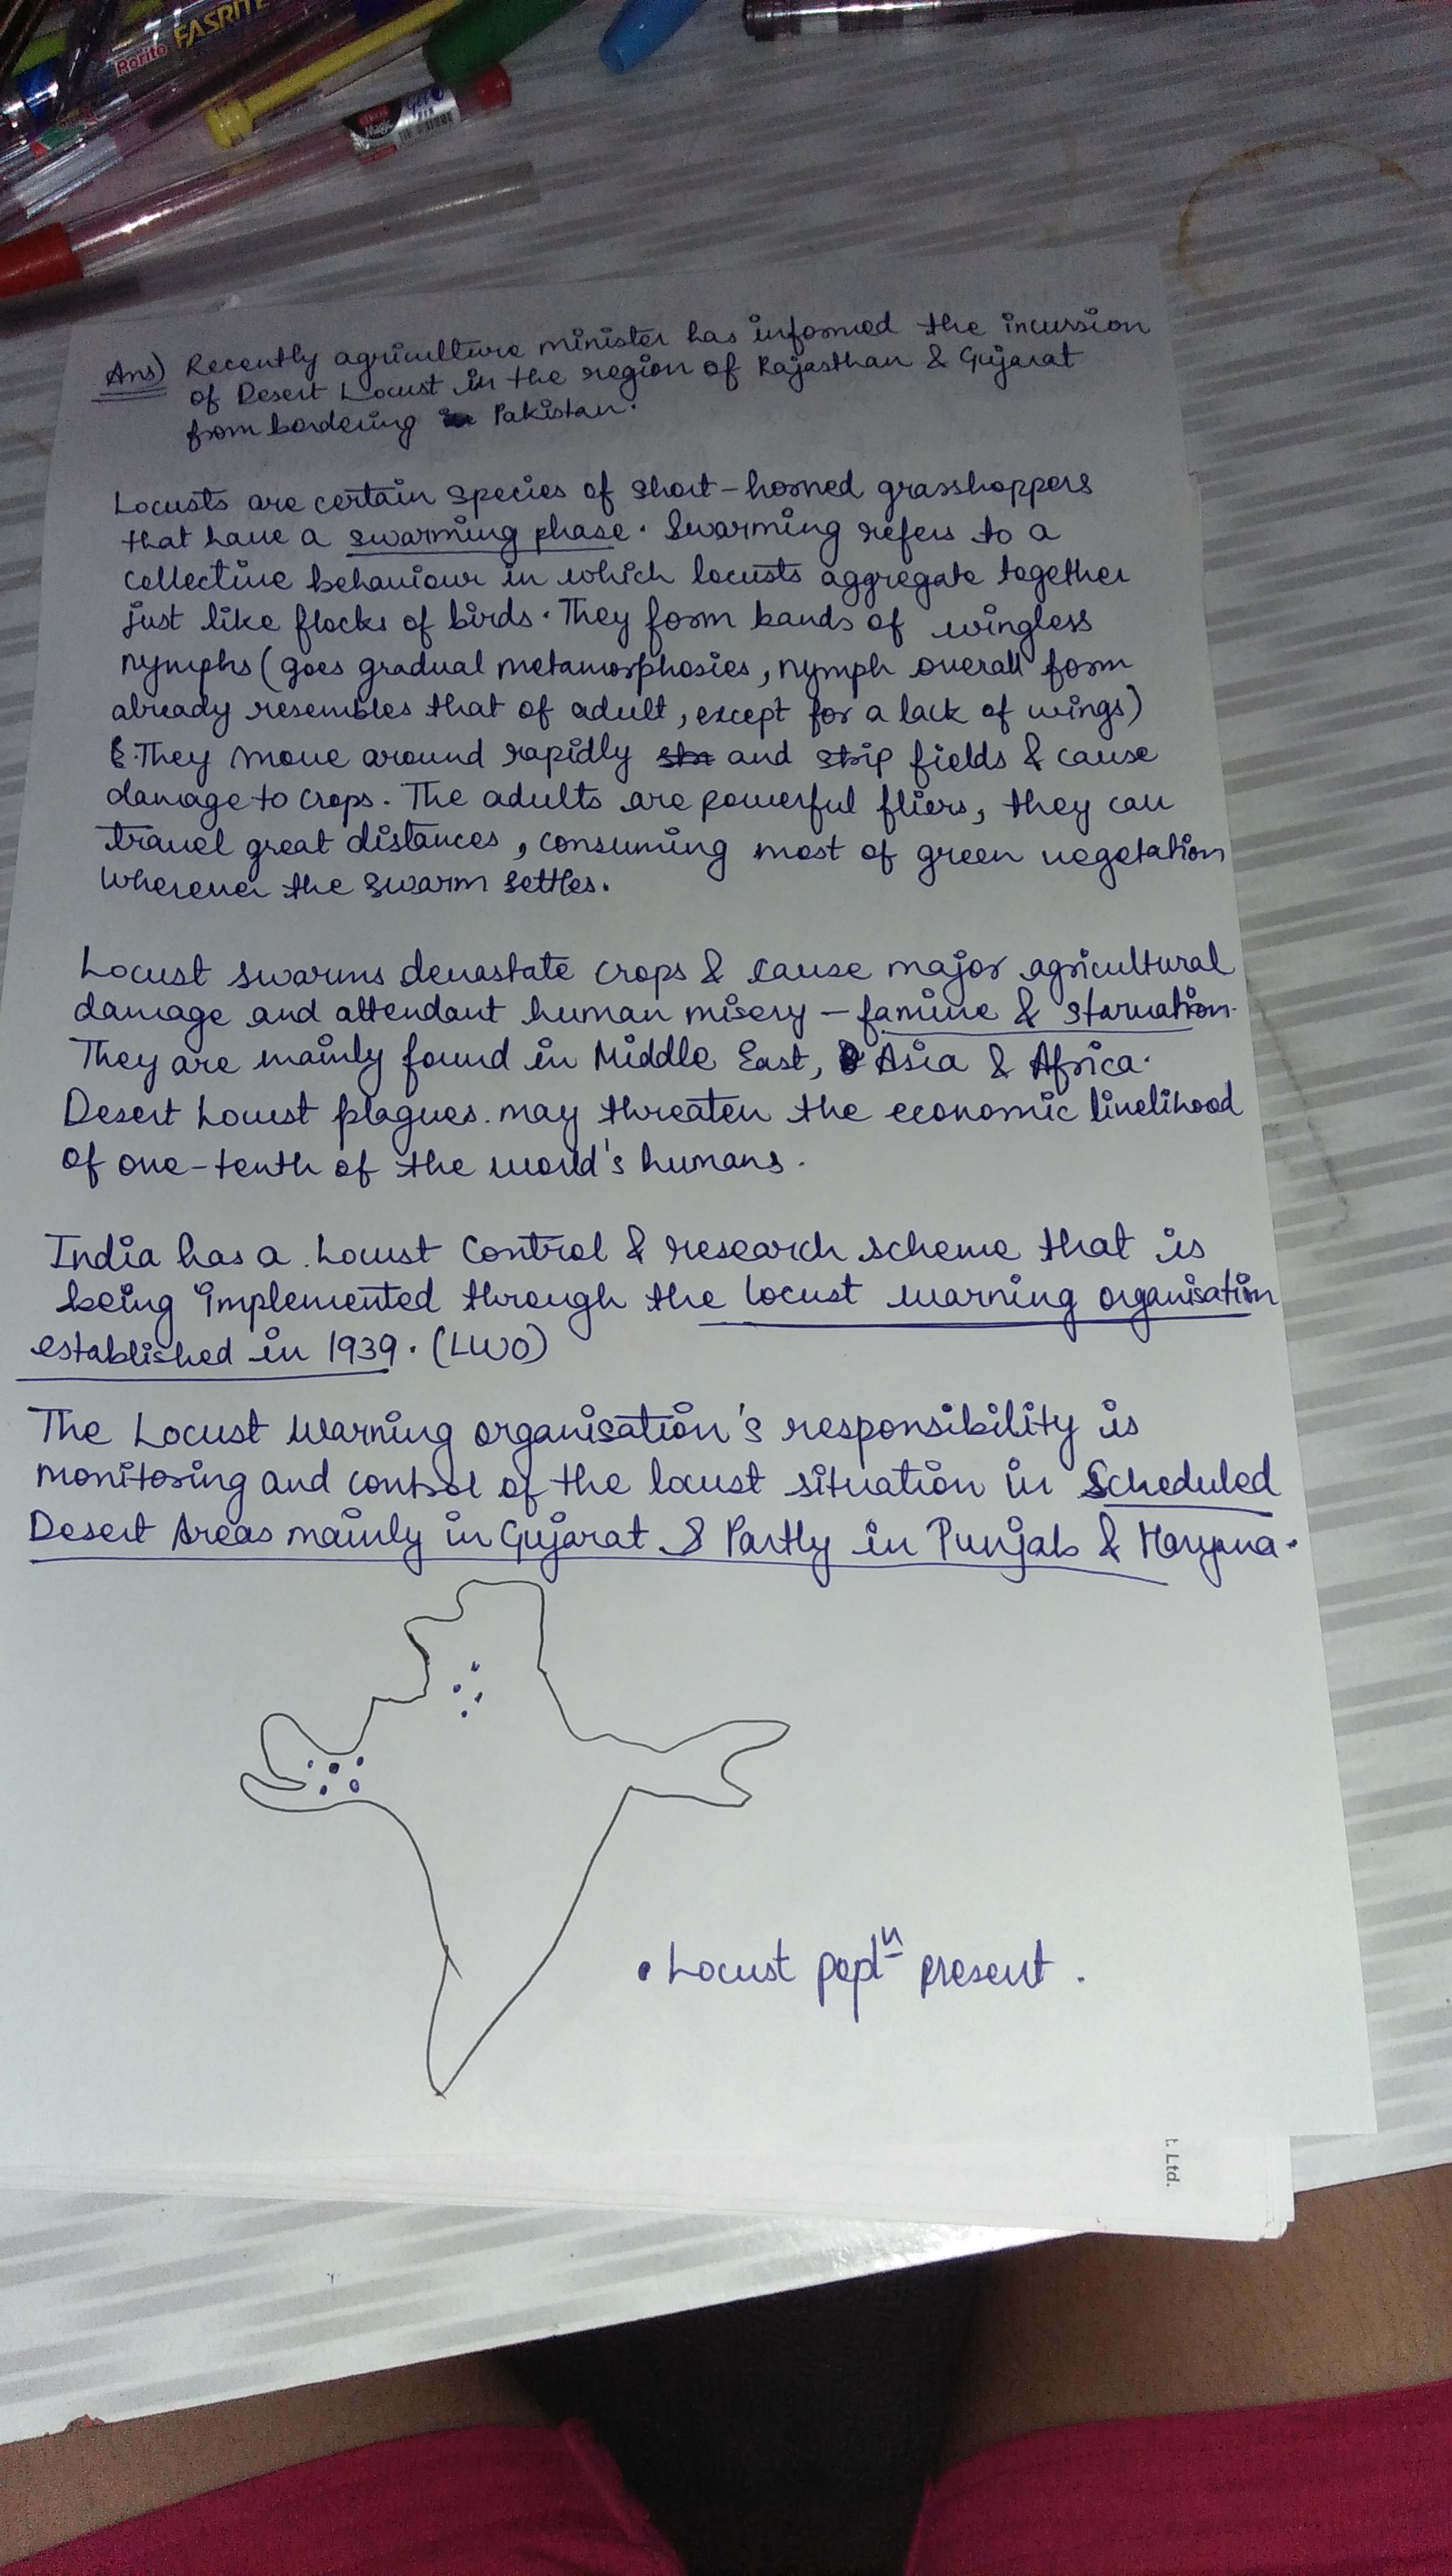 FASRITE
Rorito
Gel
Magic
Ans) Recently agriculture minister has informed the incursion
of Desert Locust in the region of Rajasthan & Gujarat
from bordering Pakistan.
Locusts are certain species of short-horned grasshoppers
that have a swarming phase. Swarming refers to a
collective behaviour in which locusts aggregate together
just like flocks of birds. They form bands of wingless
nymphs (goes gradual metamorphosies, nymph overall form
already resembles that of adult, except for a lack of wings)
& They move around rapidly and strip fields & cause
damage to crops. The adults are powerful fliers, they can
travel great distances, consuming most of green vegetation
wherever the swarm settles.
Locust swarms devastate crops & cause major agricultural
damage and attendant human misery - famine & starvation.
They are mainly found in Middle East, Asia & Africa.
Desert Locust plagues. may threaten the economic livelihood
of one-tenth of the world's humans.
India has a Locust Control & research scheme that is
being implemented through the locust warning organisation
established in 1939. (LWO)
The Locust Warning organisation's responsibility is
monitoring and control of the locust situation in Scheduled
Desert Areas mainly in Gujarat & Partly in Punjab & Haryana.
• Locust popl<sup>n</sup> present.
t. Ltd.